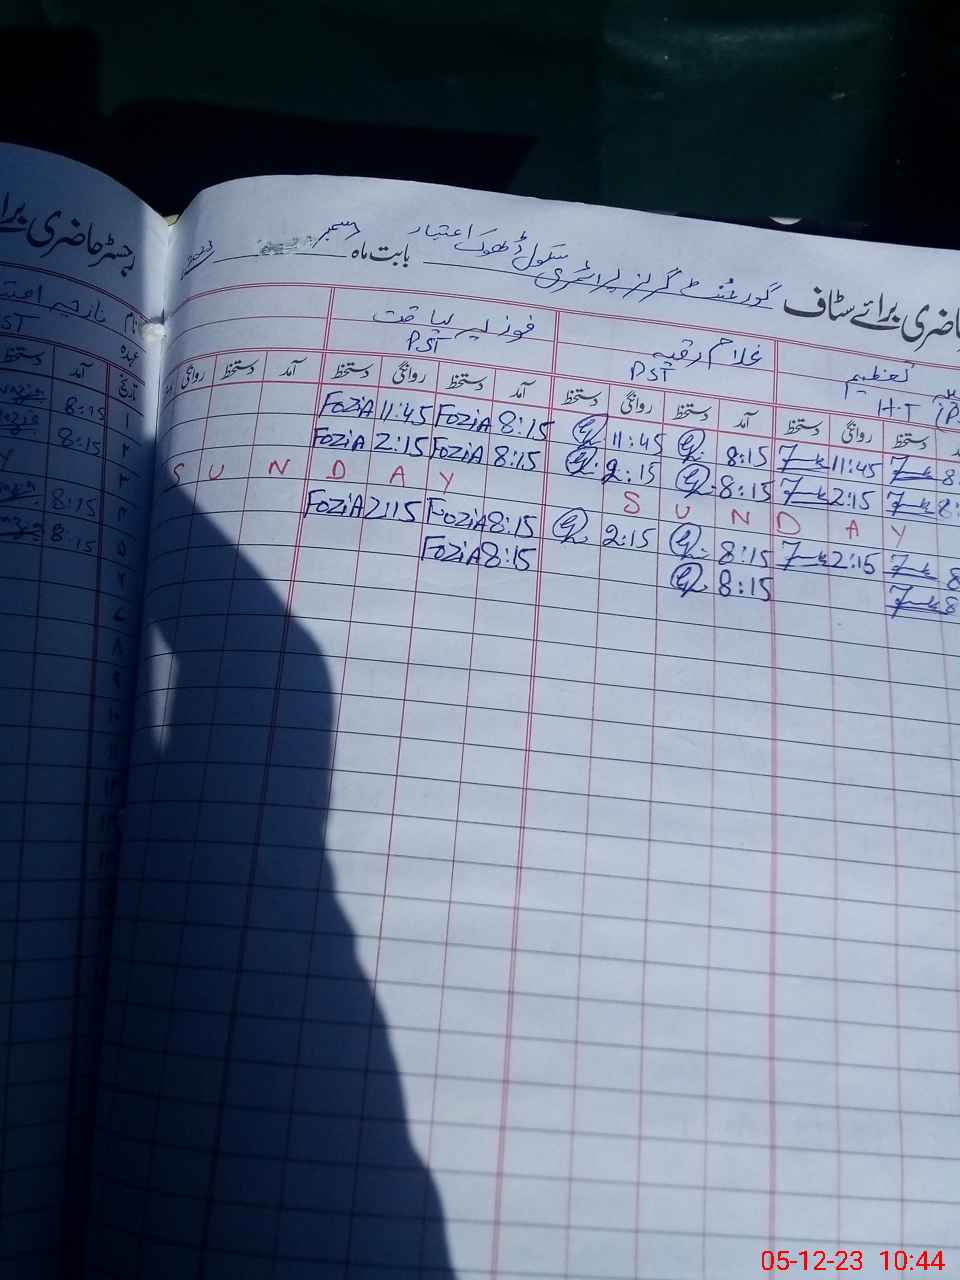 حاضری برائے سٹاف گورنمنٹ گرلز پرائمری سکول ڈھوک اعتبار بابت ماہ دسمبر
رجسٹر حاضری
تعظیم
غلام رقیہ
فوزیہ لیاقت
نام نازیہ
H.T
PST
PST
عہدہ
دستخط روانگی دستخط آمد دستخط روانگی دستخط آمد دستخط روانگی دستخط آمد دستخط روانگی
تاریخ آمد دستخط
11:45 8:15 11:45 FOZiA 8:15 FOZiA 11:45 FOZiA
۱ 8:15
2:15 8:15 2:15 8:15 FOZiA 2:15 FOZiA
۲ 8:15
S U N D A Y
S U N D A Y
۳
2:15 8:15 2:15 8:15 FOZiA 2:15 FOZiA
۴ 8:15
8:15 8:15 FOZiA
۵ 8:15
۶
۷
۸
۹
۱۰
05-12-23 10:44